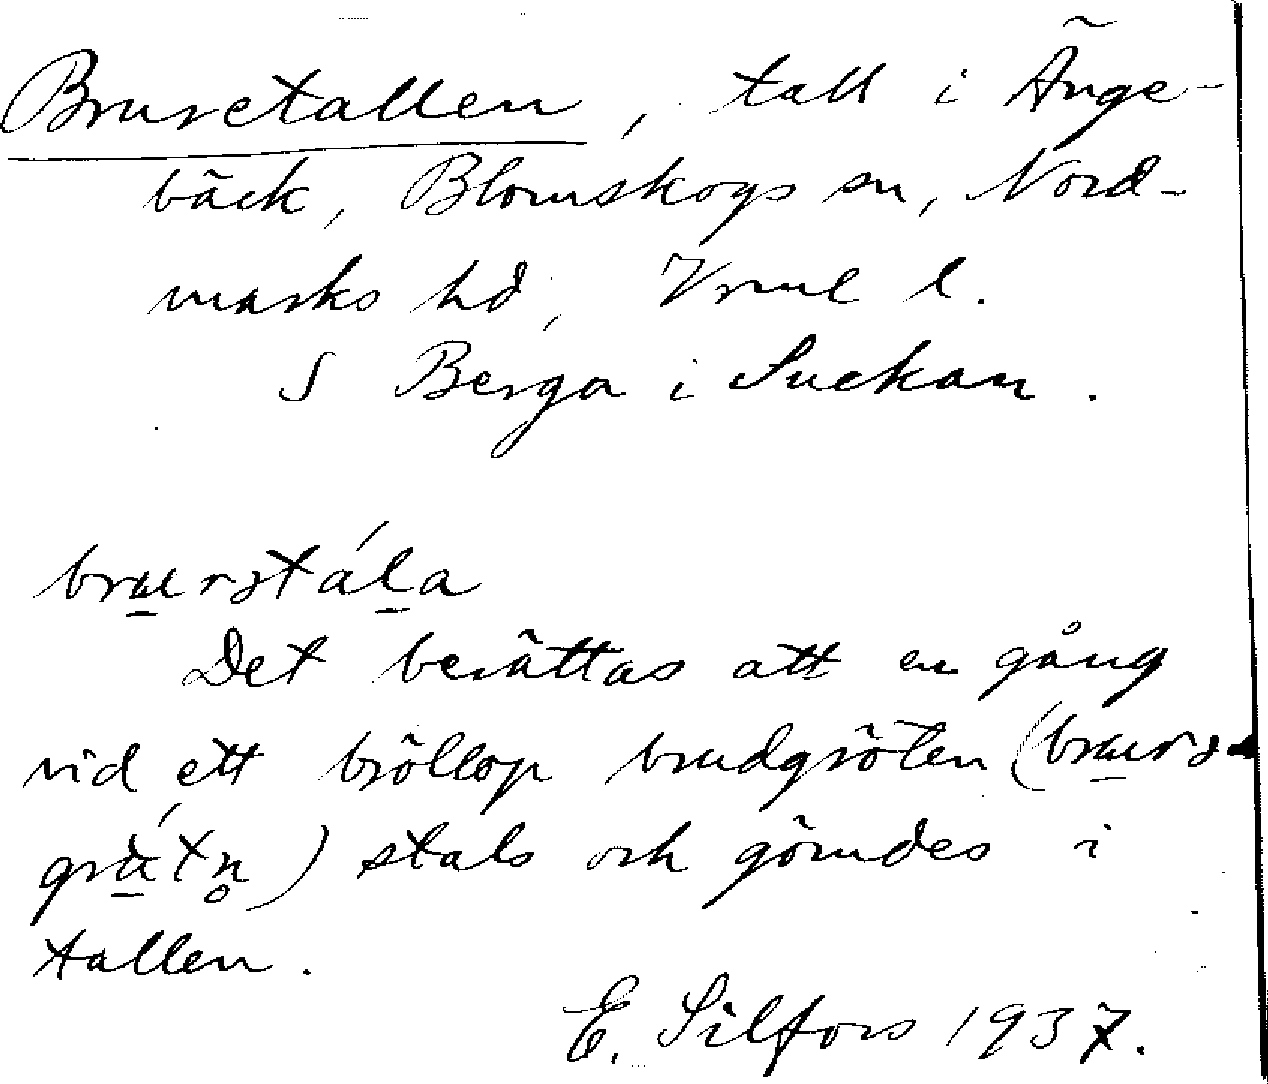 Brursetallen, tall i Änge-
bäck, Blomskogs sn, Nord-
marks hd, Vrml l.
S Berga i Suckan.
brurstála
Det berättas att en gång
vid ett bröllop brudgröten (brurs-
grö́tn̥) stals och gömdes i
tallen.
E. Silfors 1937.